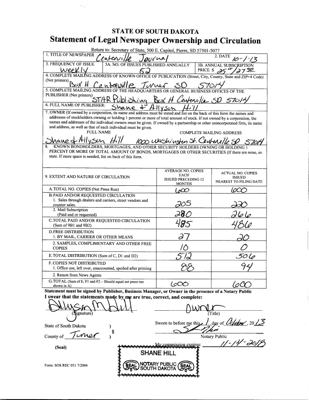 STATE OF SOUTH DAKOTA
Statement of Legal Newspaper Ownership and Circulation
Return to: Secretary of State, 500 E. Capitol, Pierre, SD 57501-5077
1. TITLE OF NEWSPAPER Centerville Journal 2. DATE 10-1-13
3. FREQUENCY OF ISSUE 3A. NO. OF ISSUES PUBLISHED ANNUALLY 3B. ANNUAL SUBSCRIPTION
weekly 52 PRICE: $
4. COMPLETE MAILING ADDRESS OF KNOWN OFFICE OF PUBLICATION (Street, City, County, State and ZIP+4 Code)
(Not printers) Box H Centerville Turner SD 57014
5. COMPLETE MAILING ADDRESS OF THE HEADQUARTERS OR GENERAL BUSINESS OFFICES OF THE
PUBLISHER (Not printers) STAR Publishing Box H Centerville SD 57014
6. FULL NAME OF PUBLISHER Shane & Allyson Hill
7. OWNER (If owned by a corporation, its name and address must be stated and list on the back of this form the names and
addresses of stockholders owning or holding 1 percent or more of total amount of stock. If not owned by a corporation, the
names and addresses of the individual owners must be given. If owned by a partnership or other unincorporated firm, its name
and address, as well as that of each individual must be given.
FULL NAME COMPLETE MAILING ADDRESS
Shane & Allyson Hill 1000 Washington St Centerville SD 57014
8. KNOWN BONDHOLDERS, MORTGAGES, AND OTHER SECURITY HOLDERS OWNING OR HOLDING 1
PERCENT OR MORE OF TOTAL AMOUNT OF BONDS, MORTGAGES OR OTHER SECURITIES (If there are none, so
state. If more space is needed, list on back of this form.
9. EXTENT AND NATURE OF CIRCULATION AVERAGE NO. COPIES EACH ISSUED PRECEDING 12 MONTHS ACTUAL NO. COPIES ISSUED NEAREST TO FILING DATE
A. TOTAL NO. COPIES (Net Press Run) 600 600
B. PAID AND/OR REQUESTED CIRCULATION
1. Sales through dealers and carriers, street vendors and
counter sales. 205 220
2. Mail Subscription
(Paid and or requested) 280 266
C. TOTAL PAID AND/OR REQUESTED CIRCULATION
(Sum of 9B1 and 9B2) 485 486
D. FREE DISTRIBUTION
1. BY MAIL, CARRIER OR OTHER MEANS 27 20
2. SAMPLES, COMPLIMENTARY AND OTHER FREE
COPIES 10 0
E. TOTAL DISTRIBUTION (Sum of C, D1 and D2) 512 506
F. COPIES NOT DISTRIBUTED
1. Office use, left over, unaccounted, spoiled after printing 88 94
2. Return from News Agents
G. TOTAL (Sum of E, F1 and F2 - Should equal net press run
shown in A) 600 600
Statement must be signed by Publisher, Business Manager, or Owner in the presence of a Notary Public
I swear that the statements made by me are true, correct, and complete:
Owner
(Signature) (Title)
State of South Dakota ) Sworn to before me this 1 day of October, 2013
County of Turner )
Notary Public
(Seal) My commission expires:
SHANE HILL
SEAL NOTARY PUBLIC SOUTH DAKOTA SEAL
Form: SOS REC 051 7/2006